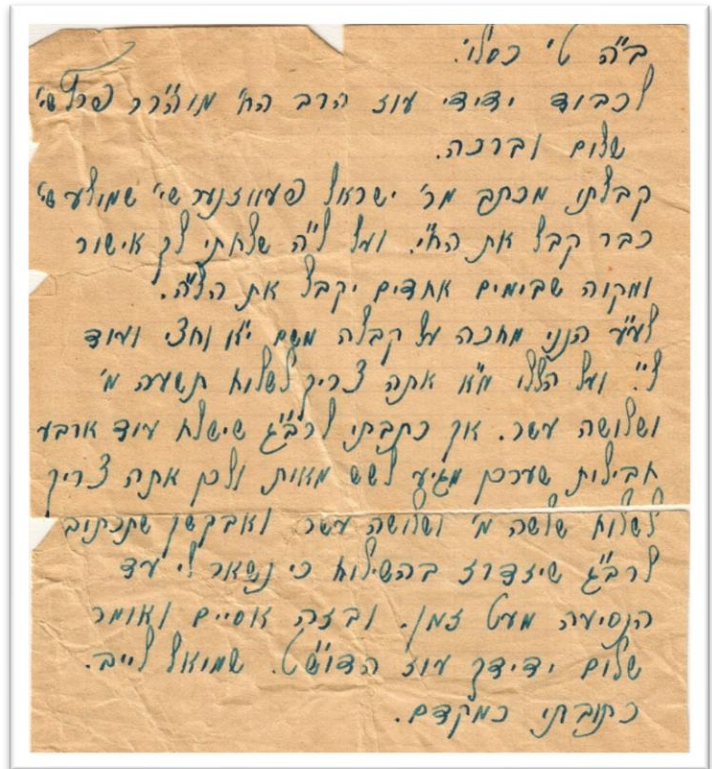 ב"ה ט' כסלו.
לכבוד ידידי עוז הרב הח' מוה"רר פרץ שי'
שלום וברכה.
קבלתי מכתב מר' ישראל פעווזנער שי' שמולע שי'
כבר קבל את הח"י. ועל ל"ה שלחתי לך אישור
ומקוה שבימים אחדים יקבל את הל"ה.
לע"ע הנני מחכה על קבלה משם י"א וחצי ועוד
ל"י. ועל הללו מ"א אתה צריך לשלוח תשעה מ'
ושלושה עשר. אך כתבתי לרב"ג שישלח עוד ארבע
חבילות שערכן מגיע לשש מאות ולכן אתה צריך
לשלוח שלשה מ' ושלושה עשר. ואבקשך שתכתוב
לרב"ג שיזדרז בהשילוח כי נשאר לי עד
הנסיעה מעט זמן. ובזה אסיים ואומר
שלום ידידך עוז הדו"שט. שמואל לייב.
כתובתי כמקדם.